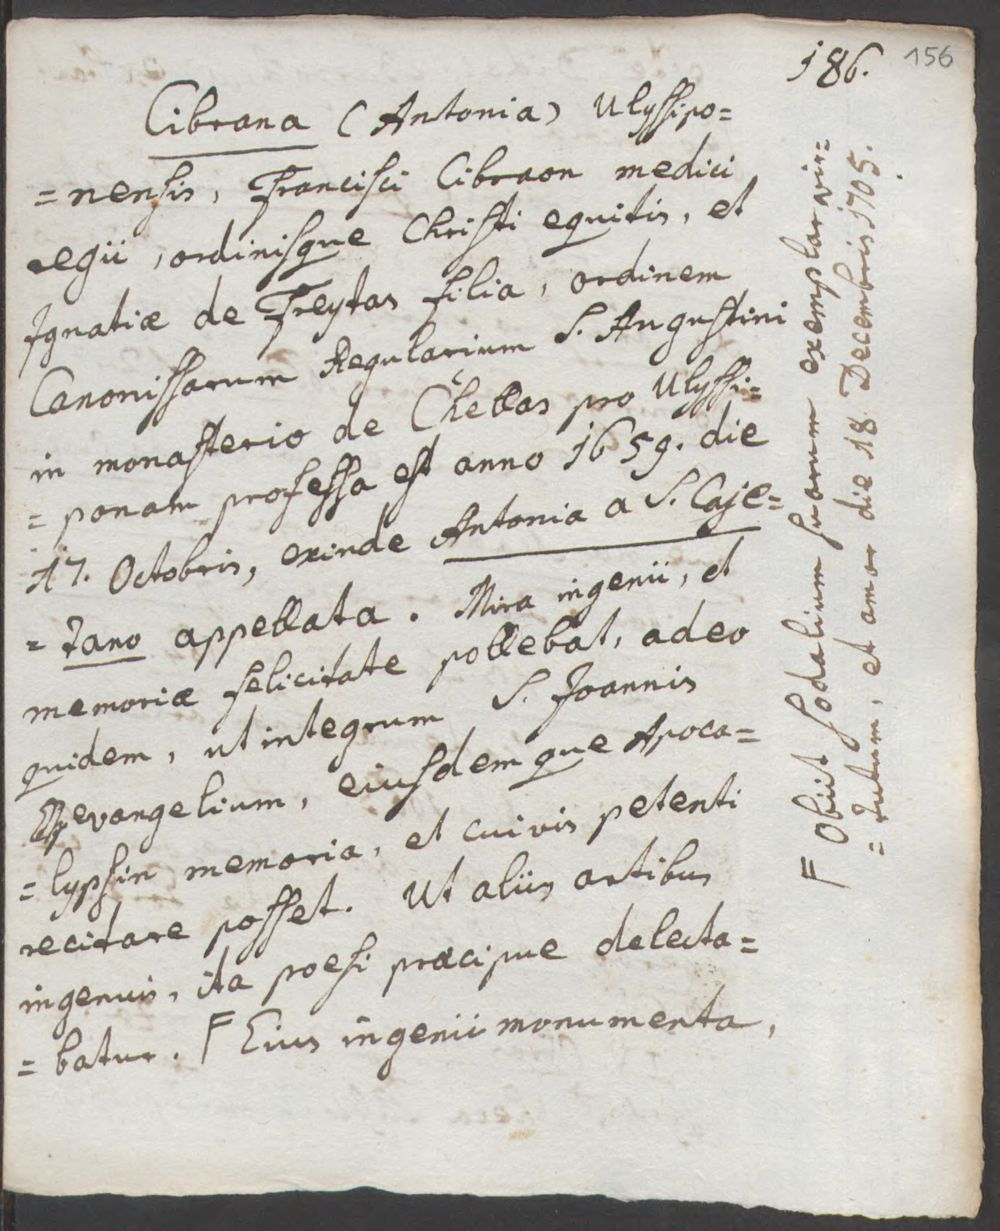 186. 156
Cibrana (Antonia) Ulyssipo=
=nensis, Francisci Cibraon medici
regii, ordinisque Christi equitis, et
Ignatiæ de Freytas filia, ordinem
Canonissarum Regularium S. Augustini
in monasterio de Chellas pro Ulyssi=
=ponam professa est anno 1659. die
17. Octobris, exinde Antonia a S. Caje=
=tano appellata. Mira ingenii, et
memoriæ felicitate pollebat, adeo
quidem, ut integrum S. Joannis
evangelium, eiusdemque Apoca=
=lypsin memoria, et cuivis petenti
recitare posset. Ut aliis artibus
ingenuis, ita poesi præcipue delecta=
=batur. F Eius ingenii monumenta,
F Obiit sodalium suarum exemplar vir=
=tutum, et amor die 18. Decembris 1705.